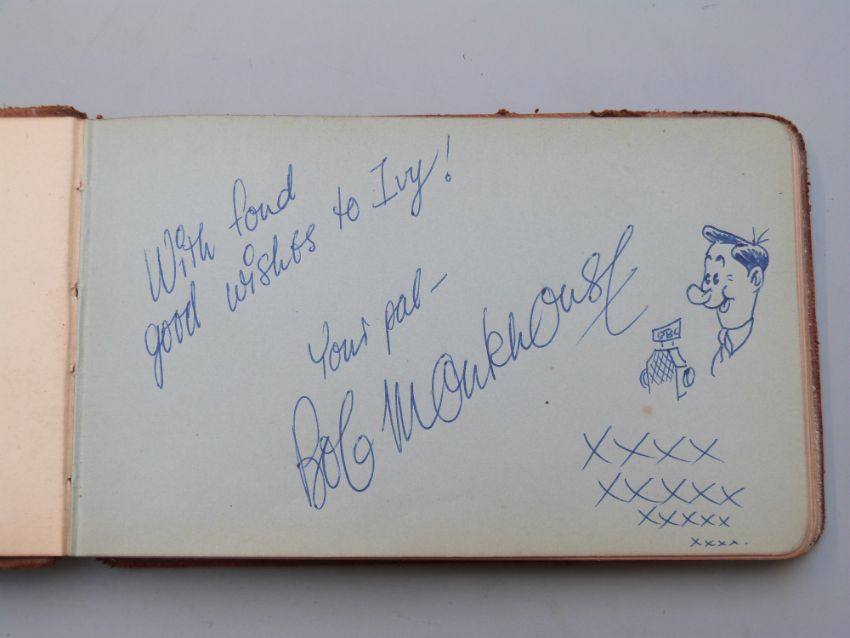 With fond
good wishes to Ivy!
Your pal —
Bob Monkhouse
BBC
XXXX
XXXXX
XXXXX
xxxx.